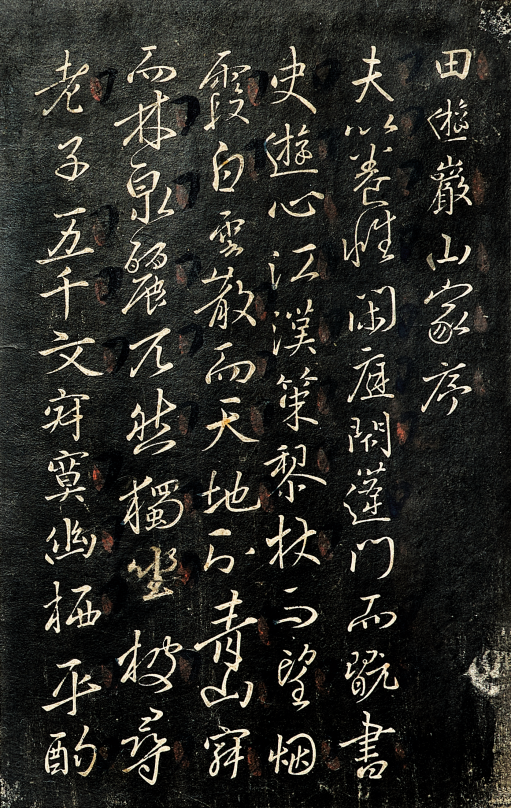 田遊巖山家序
夫以卷性閑庭閉蓬門而翫書
史遊心江漢策黎杖而望烟
霞白雲散而天地分青山寂
而林泉麗兀然獨坐披尋
老子五千文寂寞幽栖平酌